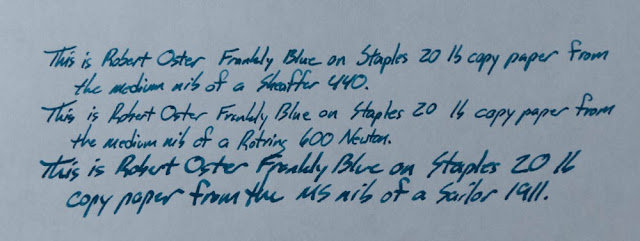 This is Robert Oster Frankly Blue on Staples 20 lb copy paper from
the medium nib of a Sheaffer 440.
This is Robert Oster Frankly Blue on Staples 20 lb copy paper from
the medium nib of a Rotring 600 Newton.
This is Robert Oster Frankly Blue on Staples 20 lb
copy paper from the MS nib of a Sailor 1911.